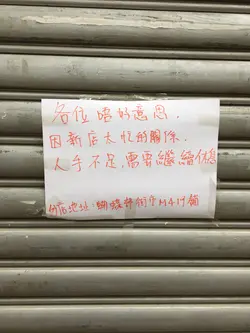 各位唔好意思,
因新店太忙的關係,
人手不足,需要繼續休息
分店地址:蝴蝶邨街市M4-17舖